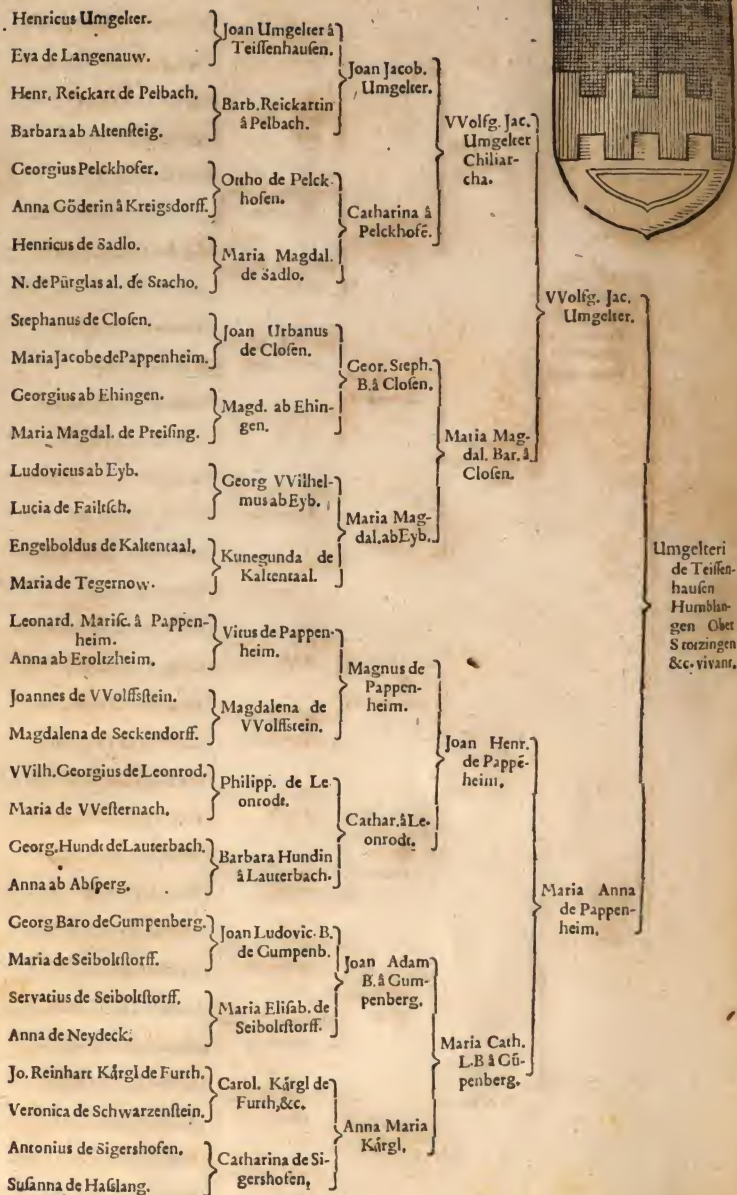 Henricus Umgelter.
Eva de Langenauw.
Henr. Reickart de Pelbach.
Barbara ab Altenſteig.
Georgius Pelckhofer.
Anna Göderin â Kreigsdorff.
Henricus de Sadlo.
N. de Pürglas al. de Stacho.
Stephanus de Cloſen.
Maria Jacobe de Pappenheim.
Georgius ab Ehingen.
Maria Magdal. de Preiſing.
Ludovicus ab Eyb.
Lucia de Failtſch.
Engelboldus de Kaltentaal.
Maria de Tegernow.
Leonard. Mariſc. â Pappen-
heim.
Anna ab Eroltzheim.
Joannes de VVolffſtein.
Magdalena de Seckendorff.
VVilh. Georgius de Leonrod.
Maria de VVeſternach.
Georg. Hundt de Lauterbach.
Anna ab Abſperg.
Georg Baro de Gumpenberg.
Maria de Seiboltſtorff.
Servatius de Seiboltſtorff.
Anna de Neydeck.
Jo. Reinhart Kårgl de Furth.
Veronica de Schwarzenſtein.
Antonius de Sigershofen.
Suſanna de Haſslang.
Joan Umgelter â
Teiſſenhauſen.
Barb. Reickartin
â Pelbach.
Ottho de Pelck-
hofen.
Maria Magdal.
de Sadlo.
Joan Urbanus
de Cloſen.
Magd. ab Ehin-
gen.
Georg VVilhel-
mus ab Eyb.
Kunegunda de
Kaltentaal.
Vitus de Pappen-
heim.
Magdalena de
VVolffſtein.
Philipp. de Le-
onrodt.
Barbara Hundin
â Lauterbach.
Joan Ludovic. B.
de Gumpenb.
Maria Eliſab. de
Seiboltſtorff.
Carol. Kårgl de
Furth, &c.
Catharina de Si-
gershofen,
Joan Jacob.
Umgelter.
Catharina â
Pelckhofē.
Geor. Steph.
B. â Cloſen.
Maria Mag-
dal. ab Eyb.
Magnus de
Pappen-
heim.
Cathar. â Le-
onrodt.
Joan Adam
B. â Gum-
penberg.
Anna Maria
Kårgl.
VVolfg. Jac.
Umgelter
Chiliar-
cha.
Maria Mag-
dal. Bar. â
Cloſen.
Joan Henr.
de Pappē-
heim.
Maria Cath.
L.B â Gū-
penberg.
VVolfg. Jac.
Umgelter.
Maria Anna
de Pappen-
heim.
Umgelteri
de Teiſſen-
hauſen
Humblan-
gen Ober
Stotzingen
&c. vivant.